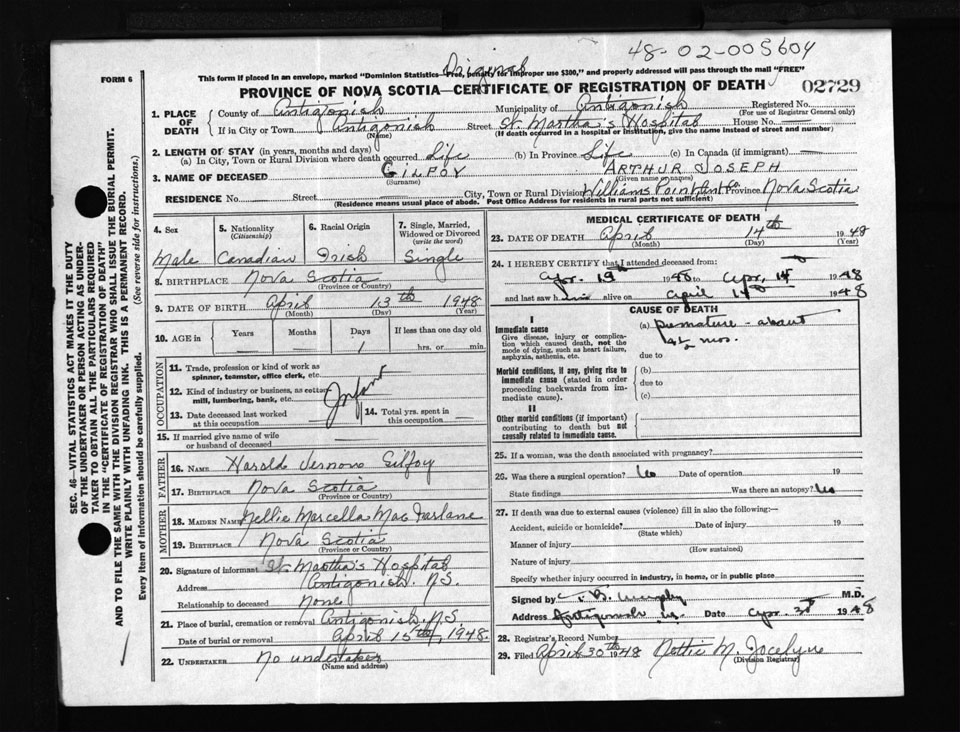 48-02-005604
Original
FORM 6
This form if placed in an envelope, marked "Dominion Statistics—Free, penalty for improper use $300," and properly addressed will pass through the mail "FREE"
PROVINCE OF NOVA SCOTIA—CERTIFICATE OF REGISTRATION OF DEATH
02729
1. PLACE OF DEATH
County of Antigonish Municipality of Antigonish Registered No.
(For use of Registrar General only)
If in City or Town Antigonish Street St. Martha's Hospital House No. —
(Name) (If death occurred in a hospital or institution, give the name instead of street and number)
2. LENGTH OF STAY (in years, months and days)
(a) In City, Town or Rural Division where death occurred Life (b) In Province Life (c) In Canada (if immigrant) —
3. NAME OF DECEASED GILFOY ARTHUR JOSEPH
(Surname) (Given name or names)
RESIDENCE No. Street City, Town or Rural Division Williams Point Ant Co. Province Nova Scotia
(Residence means usual place of abode. Post Office Address for residents in rural parts not sufficient)
4. Sex Male
5. Nationality (Citizenship) Canadian
6. Racial Origin Irish
7. Single, Married, Widowed or Divorced (write the word) Single
8. BIRTHPLACE Nova Scotia
(Province or Country)
9. DATE OF BIRTH April 13th 1948
(Month) (Day) (Year)
10. AGE in Years Months Days If less than one day old
— — 1 hrs. or min.
OCCUPATION
11. Trade, profession or kind of work as spinner, teamster, office clerk, etc.
12. Kind of industry or business, as cotton mill, lumbering, bank, etc.
Infant
13. Date deceased last worked at this occupation
14. Total yrs. spent in this occupation
15. If married give name of wife or husband of deceased
FATHER
16. NAME Harold Vernon Gilfoy
17. BIRTHPLACE Nova Scotia
(Province or Country)
MOTHER
18. MAIDEN NAME Nellie Marcella MacFarlane
19. BIRTHPLACE Nova Scotia
(Province or Country)
20. Signature of informant St. Martha's Hospital
Address Antigonish. N.S.
Relationship to deceased None
21. Place of burial, cremation or removal Antigonish, N.S.
Date of burial or removal April 15th, 1948.
22. UNDERTAKER No undertaker
(Name and address)
MEDICAL CERTIFICATE OF DEATH
23. DATE OF DEATH April 14th 1948
(Month) (Day) (Year)
24. I HEREBY CERTIFY that I attended deceased from:
Apr. 1948 to Apr. 14 1948
and last saw h alive on April 14 1948
CAUSE OF DEATH
I
Immediate cause
Give disease, injury or complication which caused death, not the mode of dying, such as heart failure, asphyxia, asthenia, etc.
(a) Premature - about
mos.
due to
Morbid conditions, if any, giving rise to immediate cause (stated in order proceeding backwards from immediate cause).
(b)
due to
(c)
II
Other morbid conditions (if important) contributing to death but not causally related to immediate cause.
25. If a woman, was the death associated with pregnancy?
26. Was there a surgical operation? No Date of operation 19
State findings Was there an autopsy? No
27. If death was due to external causes (violence) fill in also the following:—
Accident, suicide or homicide? Date of injury 19
(State which)
Manner of injury
(How sustained)
Nature of injury
Specify whether injury occurred in industry, in home, or in public place
Signed by Murphy M.D.
Address Antigonish N.S. Date Apr. 30 1948
28. Registrar's Record Number
29. Filed April 30th 1948 Nettie M. Jocelyne
(Division Registrar)
SEC. 46—VITAL STATISTICS ACT MAKES IT THE DUTY
OF THE UNDERTAKER OR PERSON ACTING AS UNDER-
TAKER TO OBTAIN ALL THE PARTICULARS REQUIRED
IN THE "CERTIFICATE OF REGISTRATION OF DEATH"
AND TO FILE THE SAME WITH THE DIVISION REGISTRAR WHO SHALL ISSUE THE BURIAL PERMIT.
WRITE PLAINLY WITH UNFADING INK. THIS IS A PERMANENT RECORD.
Every item of information should be carefully supplied. (See reverse side for instructions.)